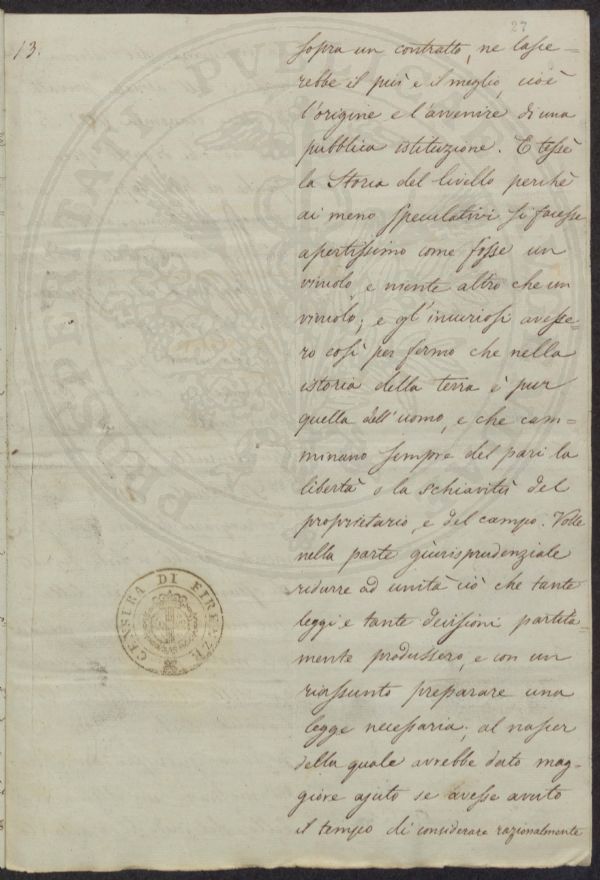 27
13.
sopra un contratto, ne lasce-
rebbe il più e il meglio, cioè
l'origine e l'avvenire di una
pubblica istituzione. E tessè
la Storia del livello perchè
ai meno speculativi si facesse
apertissimo come fosse un
vincolo e niente altro che un
vincolo; e gl'incuriosi avesse-
ro così per fermo che nella
istoria della terra è pur
quella dell'uomo, e che cam-
minano sempre del pari la
libertà o la schiavitù del
proprietario, e del campo. Volle
nella parte giurisprudenziale
ridurre ad unità ciò che tante
leggi e tante decisioni partita-
mente produssero, e con un
riassunto preparare una
legge necessaria; al nascer
della quale avrebbe dato mag-
giore ajuto se avesse avuto
il tempo di considerare razionalmente
CENSURA DI FIRENZE